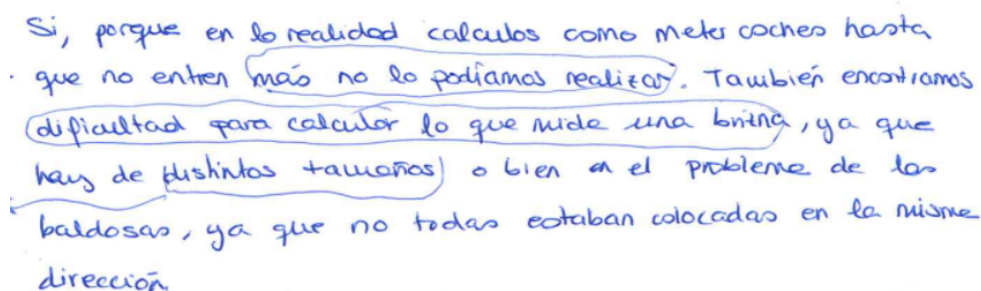 Si, porque en la realidad calculos como meter coches hasta
que no entren más no lo podíamos realizar. También encontramos
dificultad para calcular lo que mide una brizna, ya que
hay de distintos tamaños o bien en el problema de las
baldosas, ya que no todas estaban colocadas en la misma
dirección